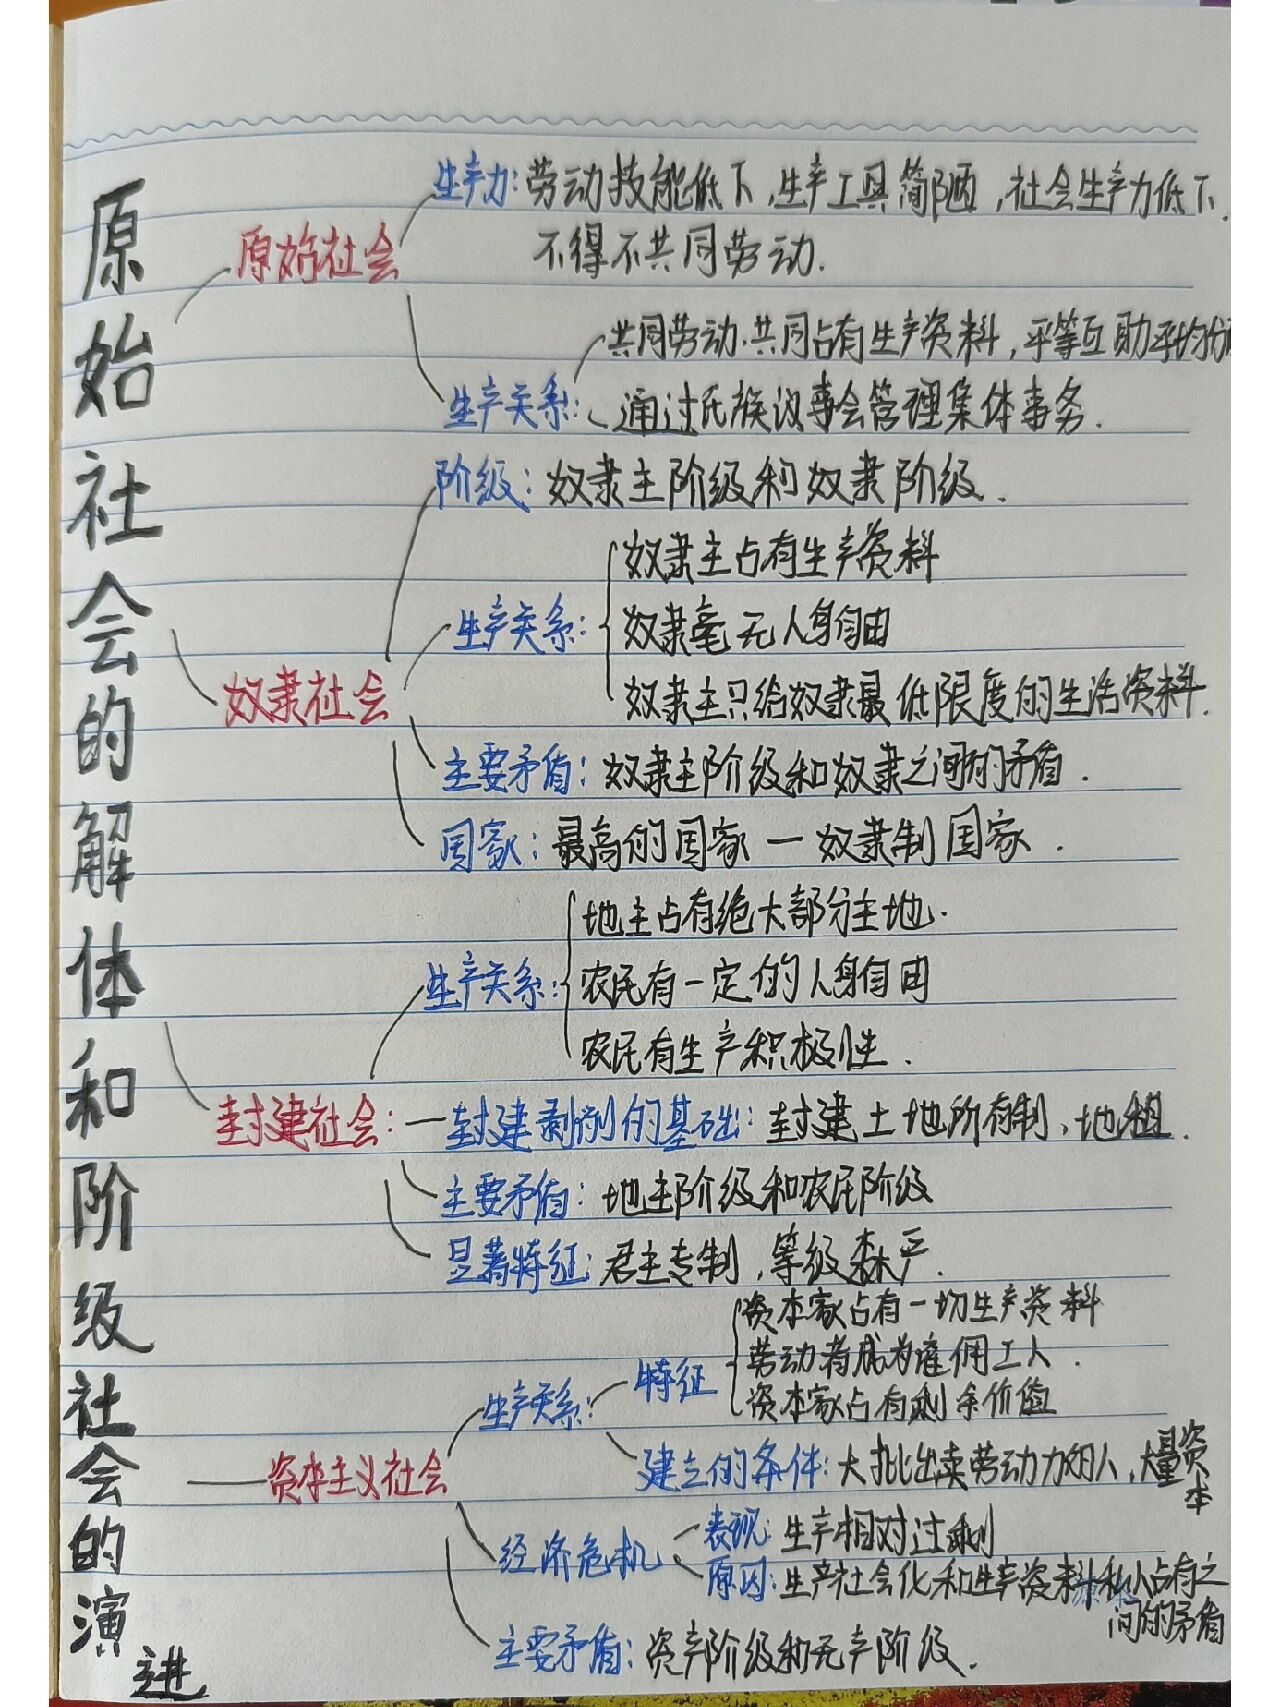 原始社会的解体和阶级社会的演进
原始社会
生产力:劳动技能低下,生产工具简陋,社会生产力低下.
不得不共同劳动.
生产关系:
共同劳动.共同占有生产资料,平等互助平均分
通过氏族议事会管理集体事务.
奴隶社会
阶级:奴隶主阶级和奴隶阶级.
生产关系:
奴隶主占有生产资料
奴隶毫无人身自由
奴隶主只给奴隶最低限度的生活资料.
主要矛盾:奴隶主阶级和奴隶之间的矛盾.
国家:最高的国家—奴隶制国家.
封建社会:
生产关系:
地主占有绝大部分土地.
农民有一定的人身自由
农民有生产积极性.
封建剥削的基础:封建土地所有制、地租.
主要矛盾:地主阶级和农民阶级
显著特征:君主专制,等级森严.
资本主义社会
生产关系:
特征
资本家占有一切生产资料
劳动者成为雇佣工人.
资本家占有剩余价值
建立的条件:大批出卖劳动力的人,大量资本
经济危机
表现:生产相对过剩
原因:生产社会化和生产资料私人占有之
间的矛盾
主要矛盾:资产阶级和无产阶级.